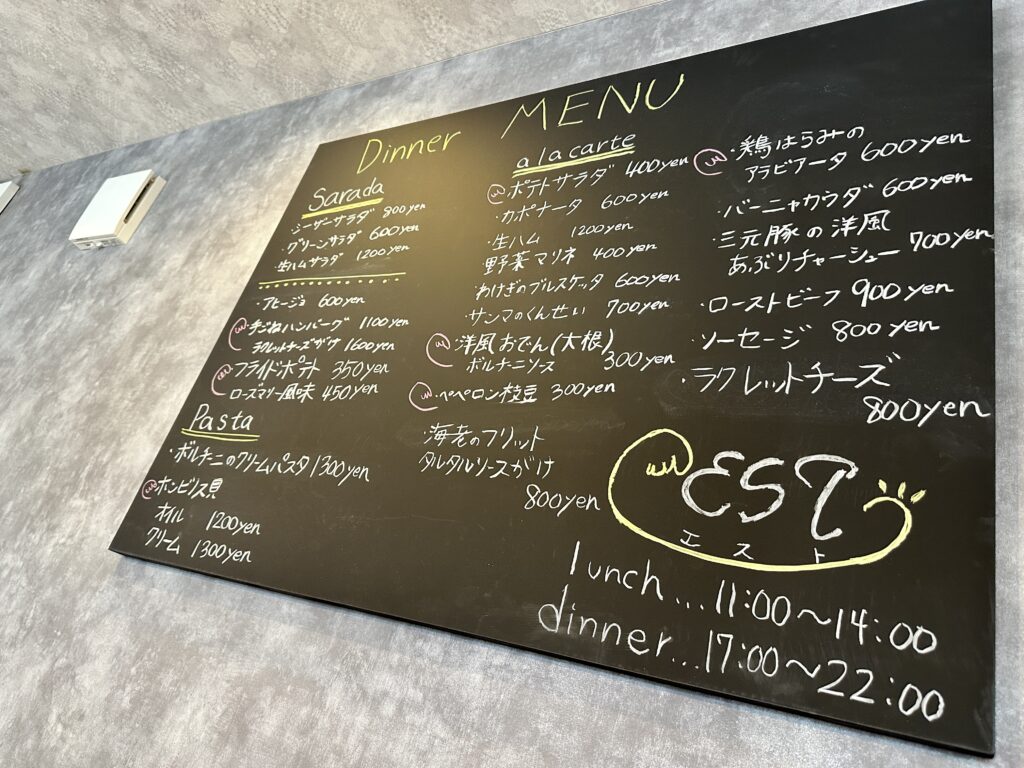 Dinner MENU
Sarada
・シーザーサラダ 800yen
・グリーンサラダ 600yen
・生ハムサラダ 1200yen
・アヒージョ 600yen
・手ごねハンバーグ 1100yen
ラクレットチーズがけ 1600yen
・フライドポテト 350yen
ローズマリー風味 450yen
Pasta
・ポルチーニのクリームパスタ 1300yen
・ホンビノス貝
オイル 1200yen
クリーム 1300yen
a la carte
・ポテトサラダ 400yen
・カポナータ 600yen
・生ハム 1200yen
野菜マリネ 400yen
わけぎのブルスケッタ 600yen
・サンマのくんせい 700yen
・洋風おでん(大根)
ポルチーニソース 300yen
・ペペロン枝豆 300yen
・海老のフリット
タルタルソースがけ
800yen
・鶏はらみの
アラビアータ 600yen
・バーニャカウダ 600yen
・三元豚の洋風
あぶりチャーシュー 700yen
・ローストビーフ 900yen
・ソーセージ 800yen
・ラクレットチーズ
800yen
EST
エスト
lunch...11:00〜14:00
dinner...17:00〜22:00